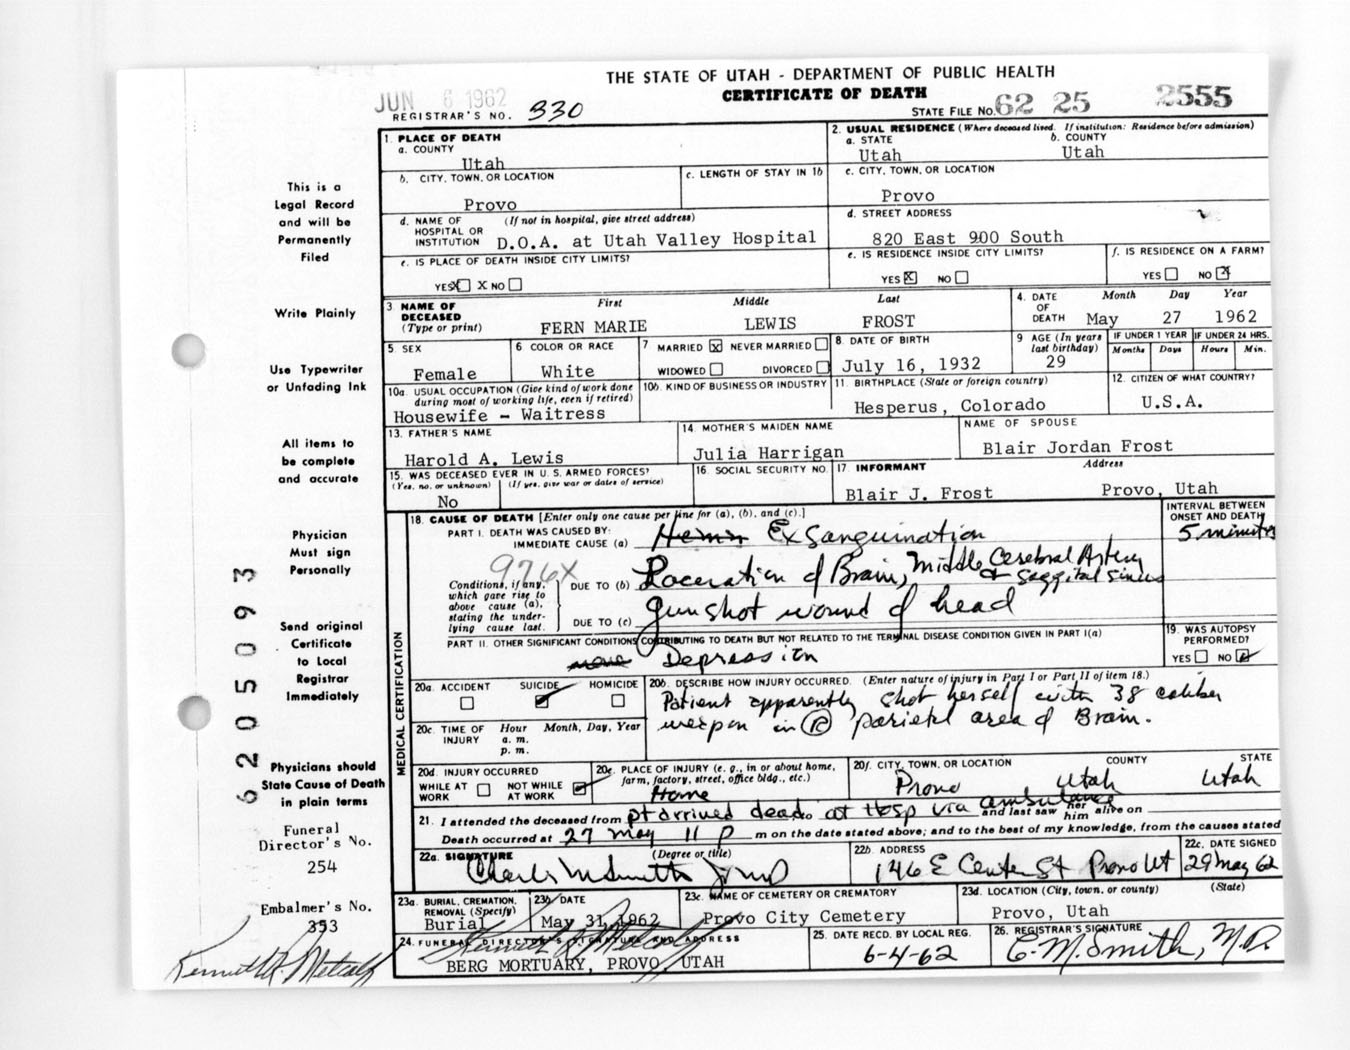 THE STATE OF UTAH - DEPARTMENT OF PUBLIC HEALTH
CERTIFICATE OF DEATH
JUN 6 1962
REGISTRAR'S NO. 330
STATE FILE NO. 62 25 2555
This is a
Legal Record
and will be
Permanently
Filed
Write Plainly
Use Typewriter
or Unfading Ink
All items to
be complete
and accurate
Physician
Must sign
Personally
Send original
Certificate
to Local
Registrar
Immediately
Physicians should
State Cause of Death
in plain terms
Funeral
Director's No.
254
Embalmer's No.
353
Kenneth R. Metcalf
6205093
1. PLACE OF DEATH
a. COUNTY
Utah
2. USUAL RESIDENCE (Where deceased lived. If institution: Residence before admission)
a. STATE b. COUNTY
Utah Utah
b. CITY, TOWN, OR LOCATION
Provo
c. LENGTH OF STAY IN 1b
c. CITY, TOWN, OR LOCATION
Provo
d. NAME OF (If not in hospital, give street address)
HOSPITAL OR
INSTITUTION D.O.A. at Utah Valley Hospital
d. STREET ADDRESS
820 East 900 South
e. IS PLACE OF DEATH INSIDE CITY LIMITS?
YES X X NO
e. IS RESIDENCE INSIDE CITY LIMITS?
YES X NO
f. IS RESIDENCE ON A FARM?
YES NO X
3 NAME OF First Middle Last
DECEASED
(Type or print) FERN MARIE LEWIS FROST
4. DATE Month Day Year
OF
DEATH May 27 1962
5. SEX
Female
6 COLOR OR RACE
White
7 MARRIED X NEVER MARRIED
WIDOWED DIVORCED
8. DATE OF BIRTH
July 16, 1932
9 AGE (In years
last birthday)
29
IF UNDER 1 YEAR IF UNDER 24 HRS.
Months Days Hours Min.
10a. USUAL OCCUPATION (Give kind of work done
during most of working life, even if retired)
Housewife - Waitress
10b. KIND OF BUSINESS OR INDUSTRY
11. BIRTHPLACE (State or foreign country)
Hesperus, Colorado
12. CITIZEN OF WHAT COUNTRY?
U.S.A.
13. FATHER'S NAME
Harold A. Lewis
14. MOTHER'S MAIDEN NAME
Julia Harrigan
NAME OF SPOUSE
Blair Jordan Frost
15. WAS DECEASED EVER IN U. S. ARMED FORCES?
(Yes, no, or unknown) (If yes, give war or dates of service)
No
16. SOCIAL SECURITY NO.
17. INFORMANT Address
Blair J. Frost Provo, Utah
MEDICAL CERTIFICATION
18. CAUSE OF DEATH [Enter only one cause per line for (a), (b), and (c).]
PART I. DEATH WAS CAUSED BY:
IMMEDIATE CAUSE (a) Exsanguination
INTERVAL BETWEEN
ONSET AND DEATH
5 minutes
976X
Conditions, if any,
which gave rise to
above cause (a),
stating the under-
lying cause last.
DUE TO (b) Laceration of Brain, Middle Cerebral Artery
& saggital sinus
DUE TO (c) gunshot wound of head
PART II. OTHER SIGNIFICANT CONDITIONS CONTRIBUTING TO DEATH BUT NOT RELATED TO THE TERMINAL DISEASE CONDITION GIVEN IN PART I(a)
none Depression
19. WAS AUTOPSY
PERFORMED?
YES NO
20a. ACCIDENT SUICIDE HOMICIDE
20b. DESCRIBE HOW INJURY OCCURRED. (Enter nature of injury in Part I or Part II of item 18.)
Patient apparently shot herself with 38 caliber
weapon in R parietal area of Brain.
20c. TIME OF Hour Month, Day, Year
INJURY a. m.
p. m.
20d. INJURY OCCURRED
WHILE AT NOT WHILE
WORK AT WORK
20e. PLACE OF INJURY (e. g., in or about home,
farm, factory, street, office bldg., etc.)
Home
20f. CITY, TOWN, OR LOCATION COUNTY STATE
Provo Utah Utah
21. I attended the deceased from pt arrived dead at Hosp via ambulance and last saw her him alive on
Death occurred at 27 May 11 p m on the date stated above; and to the best of my knowledge, from the causes stated
22a. SIGNATURE (Degree or title)
Charles M Smith Jr MD
22b. ADDRESS
146 E Center St Provo Ut
22c. DATE SIGNED
29 May 62
23a. BURIAL, CREMATION,
REMOVAL (Specify)
Burial
23b. DATE
May 31, 1962
23c. NAME OF CEMETERY OR CREMATORY
Provo City Cemetery
23d. LOCATION (City, town, or county) (State)
Provo, Utah
24. FUNERAL DIRECTOR'S SIGNATURE AND ADDRESS
BERG MORTUARY, PROVO, UTAH
25. DATE RECD. BY LOCAL REG.
6-4-62
26. REGISTRAR'S SIGNATURE
C. M. Smith, M.D.